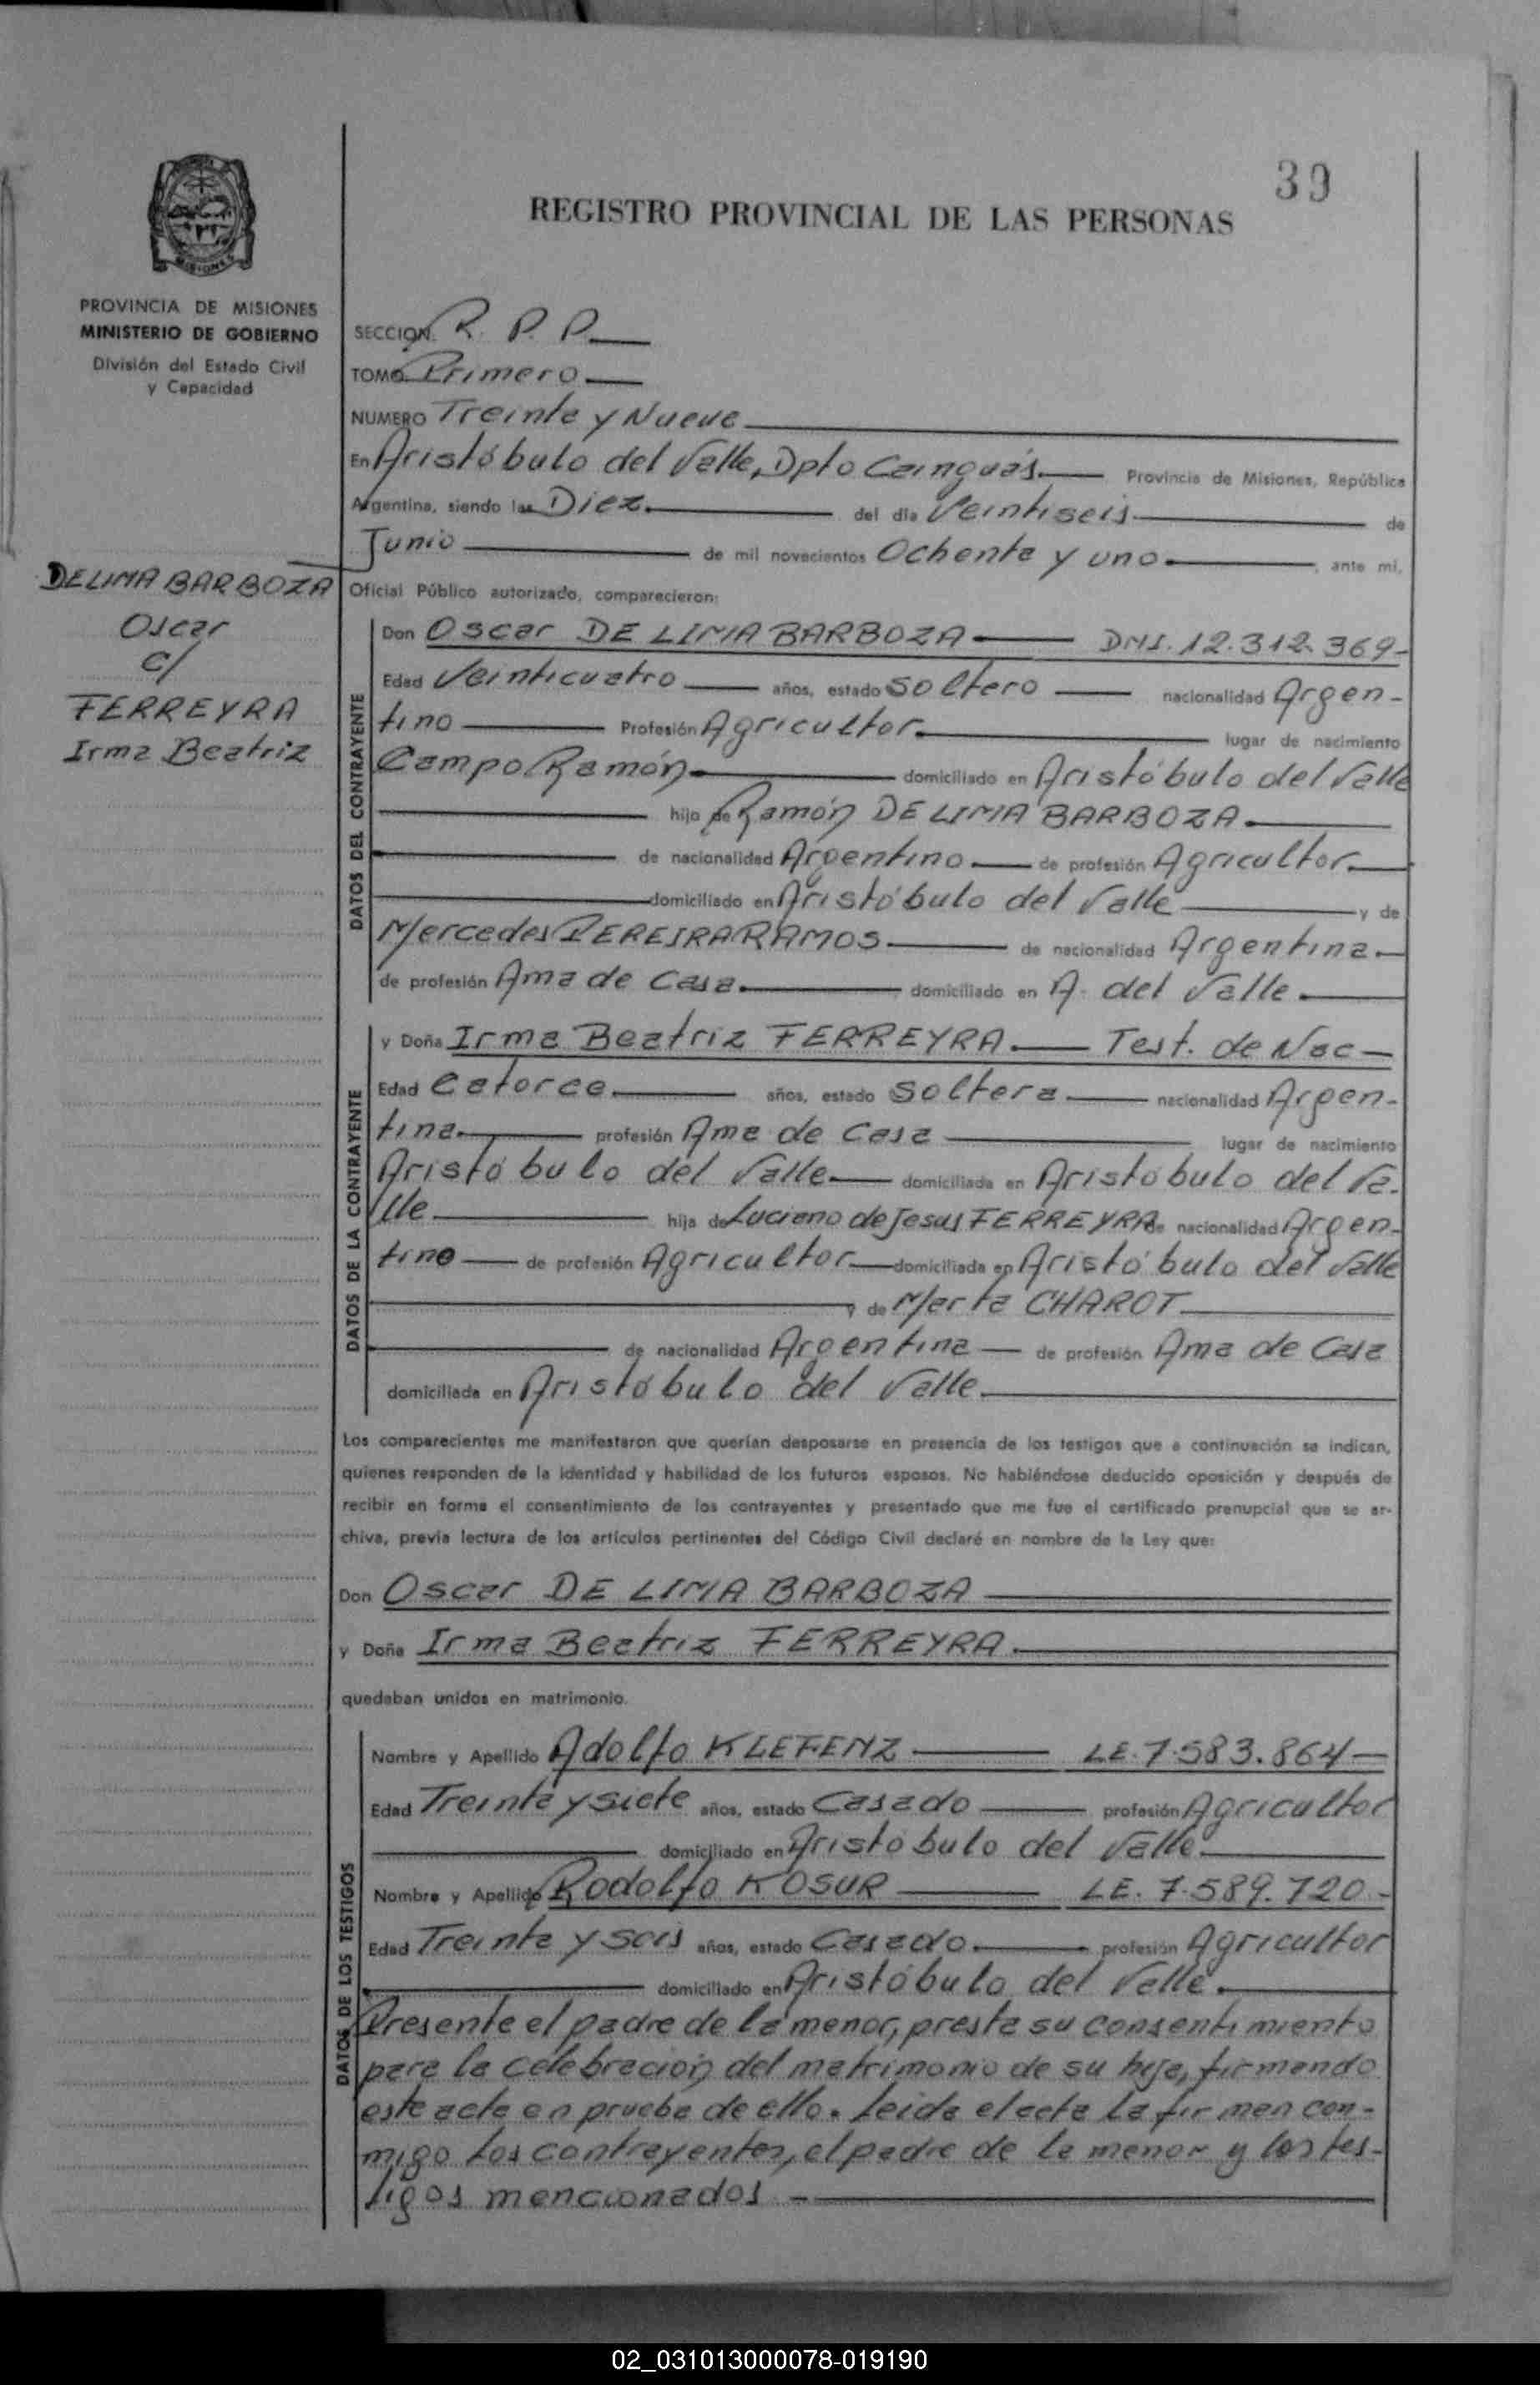 39
REGISTRO PROVINCIAL DE LAS PERSONAS
MISIONES
PROVINCIA DE MISIONES
MINISTERIO DE GOBIERNO
División del Estado Civil
y Capacidad
DE LIMA BARBOZA
Oscar
c/
FERREYRA
Irma Beatriz
SECCION R. P. P.
TOMO Primero
NUMERO Treinta y Nueve
En Aristóbulo del Valle, Dpto Cainguás Provincia de Misiones, República
Argentina, siendo las Diez. del día Veintiseis de
Junio de mil novecientos Ochenta y uno , ante mi,
Oficial Público autorizado, comparecieron:
DATOS DEL CONTRAYENTE
Don Oscar DE LIMA BARBOZA DNI. 12.312.369-
Edad Veinticuatro años, estado soltero nacionalidad Argen-
tino Profesión Agricultor. lugar de nacimiento
Campo Ramón domiciliado en Aristóbulo del Valle
hijo de Ramón DE LIMA BARBOZA.
de nacionalidad Argentino de profesión Agricultor.
domiciliado en Aristóbulo del Valle y de
Mercedes PEREIRA RAMOS. de nacionalidad Argentina.
de profesión Ama de Casa. domiciliado en A. del Valle.
DATOS DE LA CONTRAYENTE
y Doña Irma Beatriz FERREYRA. Test. de Nac
Edad Catorce. años, estado soltera. nacionalidad Argen-
tina. profesión Ama de Casa lugar de nacimiento
Aristóbulo del Valle. domiciliada en Aristóbulo del Va-
lle. hija de Luciano de Jesus FERREYRA de nacionalidad Argen-
tino de profesión Agricultor domiciliada en Aristóbulo del Valle
y de Marta CHAROT
de nacionalidad Argentina de profesión Ama de Casa
domiciliada en Aristóbulo del Valle.
Los comparecientes me manifestaron que querían desposarse en presencia de los testigos que a continuación se indican,
quienes responden de la identidad y habilidad de los futuros esposos. No habiéndose deducido oposición y después de
recibir en forma el consentimiento de los contrayentes y presentado que me fue el certificado prenupcial que se ar-
chiva, previa lectura de los artículos pertinentes del Código Civil declaré en nombre de la Ley que:
Don Oscar DE LIMA BARBOZA
y Doña Irma Beatriz FERREYRA.
quedaban unidos en matrimonio.
DATOS DE LOS TESTIGOS
Nombre y Apellido Adolfo KLEFENZ LE. 7.583.864
Edad Treinta y siete años, estado Casado profesión Agricultor
domiciliado en Aristóbulo del Valle.
Nombre y Apellido Rodolfo KOSUR LE. 7.589.720-
Edad Treinta y seis años, estado Casado. profesión Agricultor
domiciliado en Aristóbulo del Valle.
Presente el padre de la menor, presta su consentimiento
para la celebración del matrimonio de su hija, firmando
este acta en prueba de ello. Leida el acta la firman con-
migo los contrayentes, el padre de la menor y los tes-
tigos mencionados
02_031013000078-019190